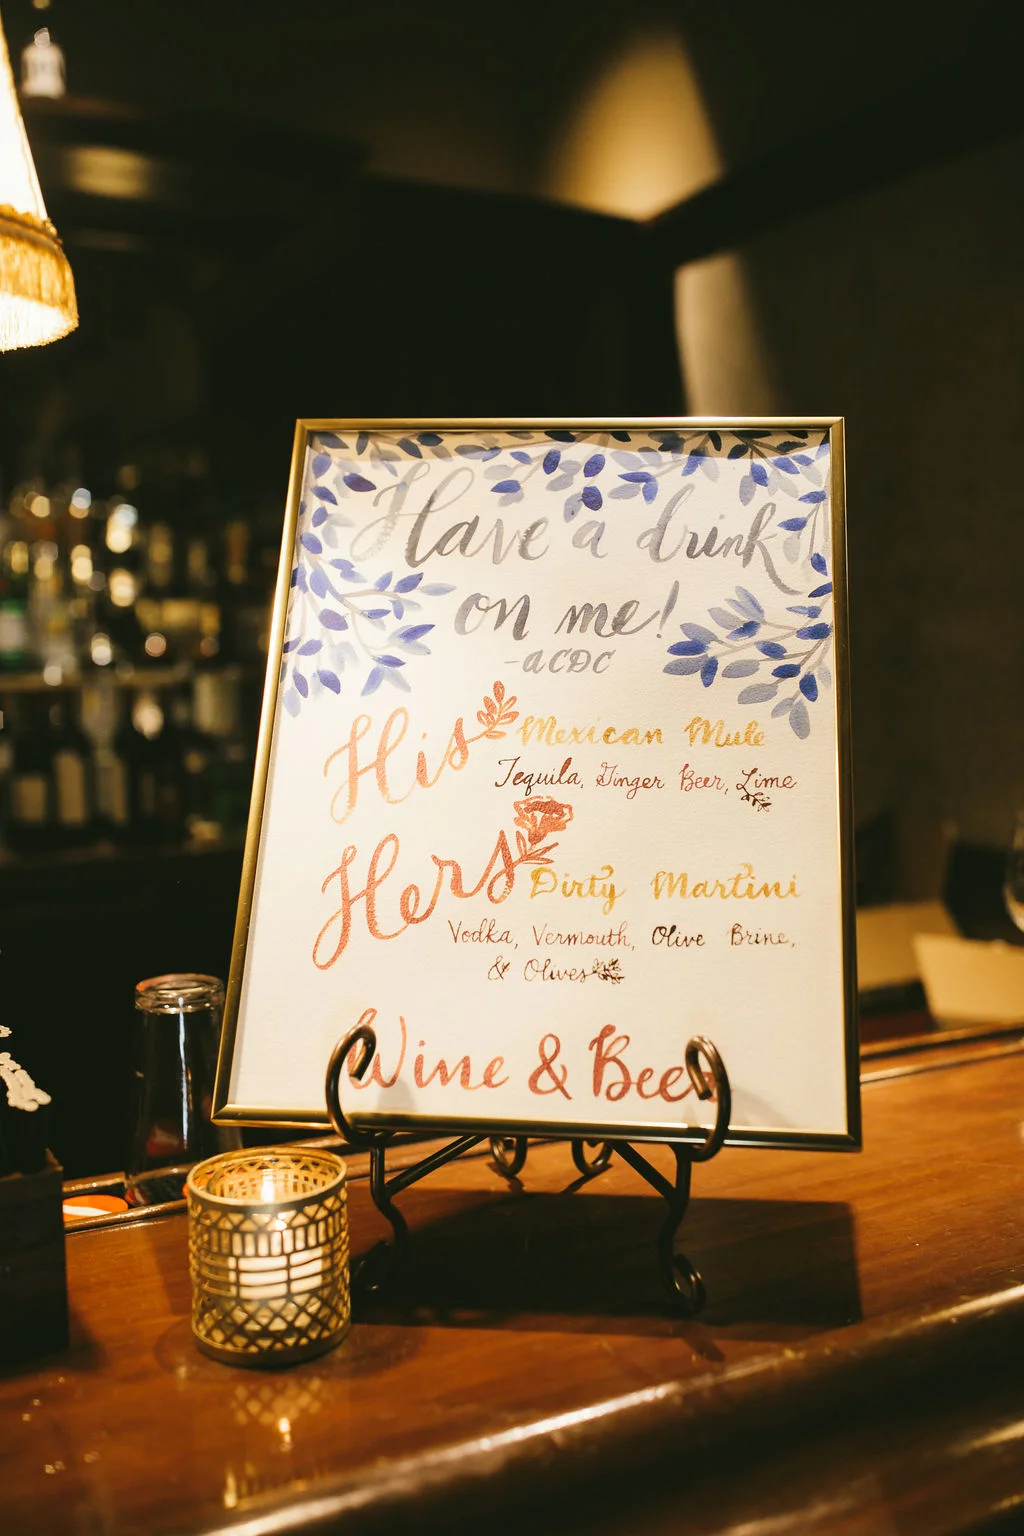 Have a drink
on me!
-ACDC
His Mexican Mule
Tequila, Ginger Beer, Lime
Hers Dirty Martini
Vodka, Vermouth, Olive Brine,
& Olives
Wine & Beer